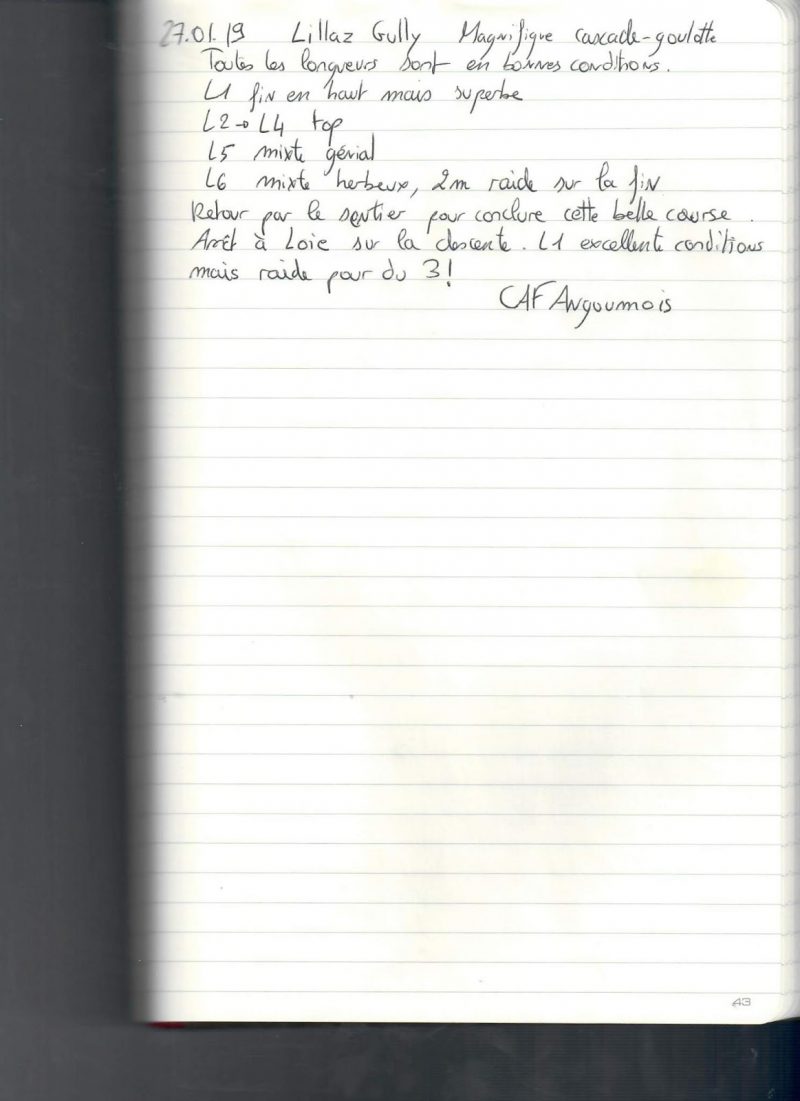 27.01.19 Lillaz Gully Magnifique cascade-goulotte
Toutes les longueurs sont en bonnes conditions.
L1 fin en haut mais superbe
L2→L4 top
L5 mixte génial
L6 mixte herbeux, 2m raide sur la fin
Retour par le sentier pour conclure cette belle course.
Arrêt à Loie sur la descente. L1 excellente conditions
mais raide pour du 3!
CAF Angoumois
43